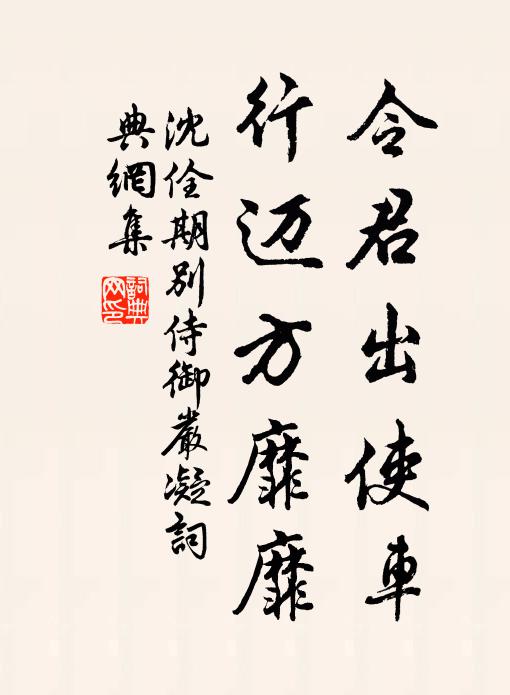 令君出使車
行迈方靡靡
沈佺期别侍御嚴凝詞
典網集
詞典网印